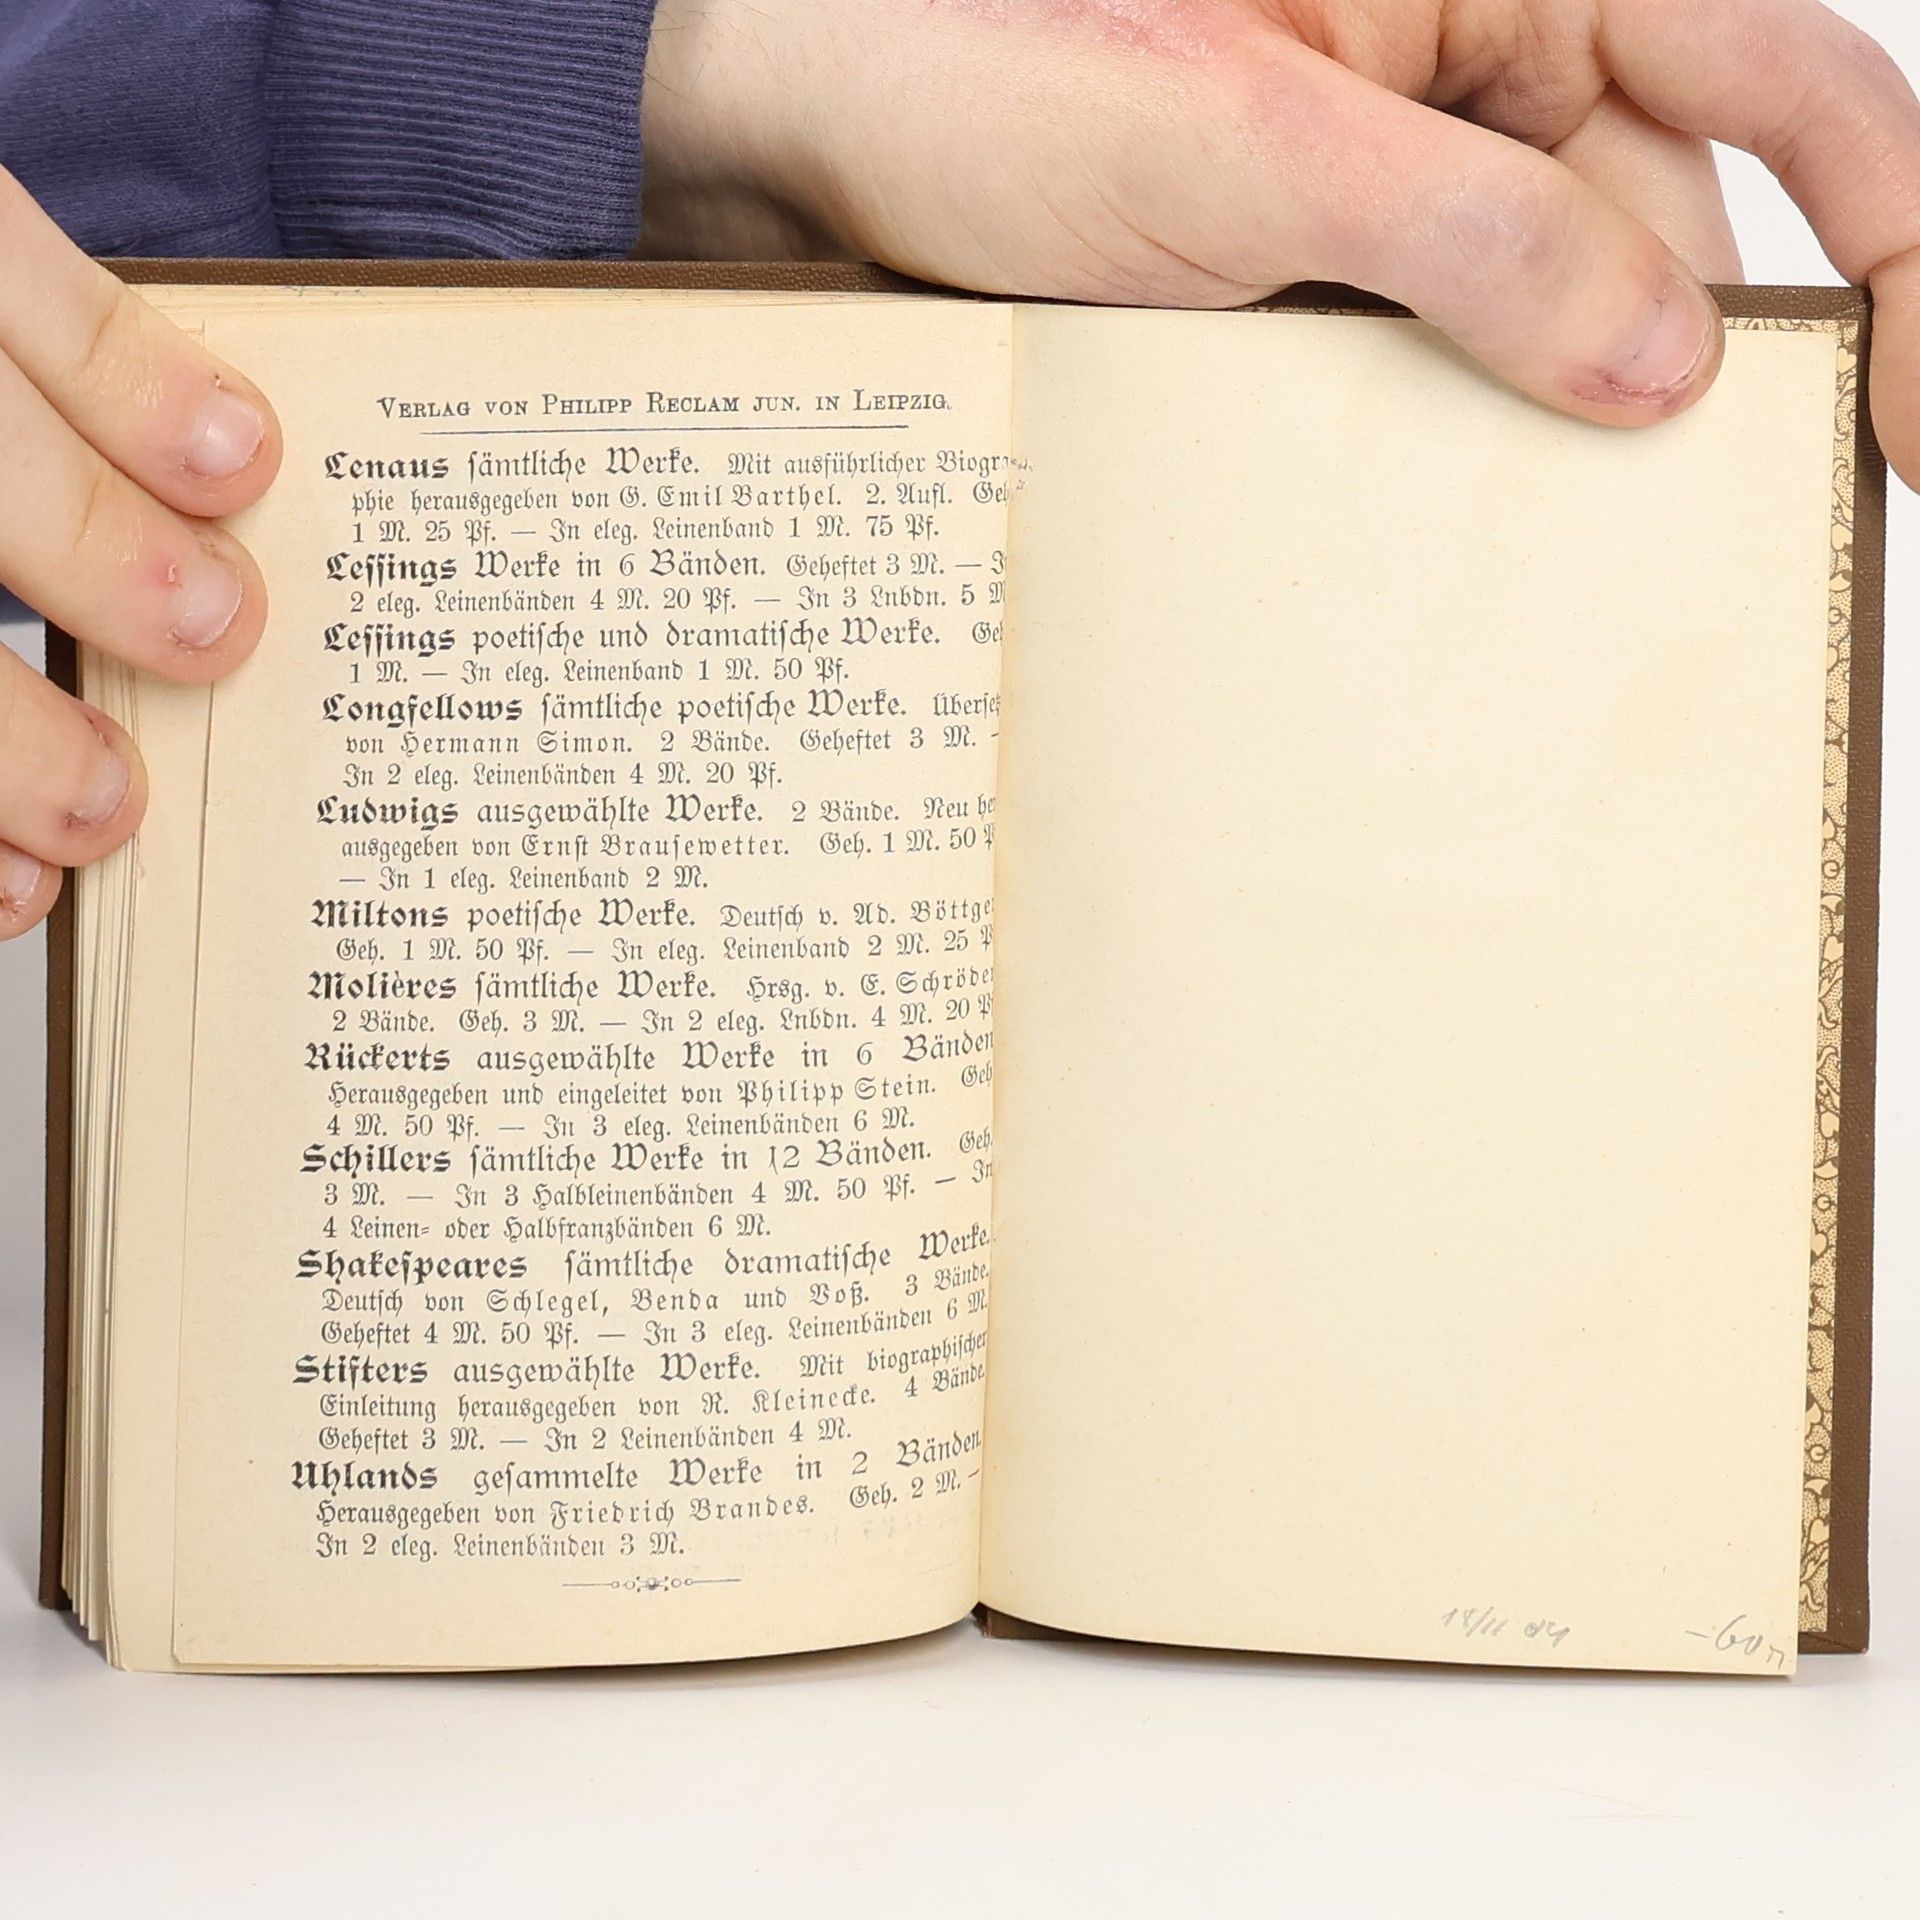 VERLAG VON PHILIPP RECLAM JUN. IN LEIPZIG.
Lenaus sämtliche Werke. Mit ausführlicher Biogra-
phie herausgegeben von G. Emil Barthel. 2. Aufl. Geh
1 M. 25 Pf. — In eleg. Leinenband 1 M. 75 Pf.
Lessings Werke in 6 Bänden. Geheftet 3 M. — In
2 eleg. Leinenbänden 4 M. 20 Pf. — In 3 Lnbdn. 5 M
Lessings poetische und dramatische Werke. Geh
1 M. — In eleg. Leinenband 1 M. 50 Pf.
Longfellows sämtliche poetische Werke. Überset
von Hermann Simon. 2 Bände. Geheftet 3 M. —
In 2 eleg. Leinenbänden 4 M. 20 Pf.
Ludwigs ausgewählte Werke. 2 Bände. Neu her
ausgegeben von Ernst Brausewetter. Geh. 1 M. 50 P
— In 1 eleg. Leinenband 2 M.
Miltons poetische Werke. Deutsch v. Ad. Böttger
Geh. 1 M. 50 Pf. — In eleg. Leinenband 2 M. 25 P
Molières sämtliche Werke. Hrsg. v. E. Schröder
2 Bände. Geh. 3 M. — In 2 eleg. Lnbdn. 4 M. 20 P
Rückerts ausgewählte Werke in 6 Bänden
Herausgegeben und eingeleitet von Philipp Stein. Geh
4 M. 50 Pf. — In 3 eleg. Leinenbänden 6 M.
Schillers sämtliche Werke in 12 Bänden. Geh.
3 M. — In 3 Halbleinenbänden 4 M. 50 Pf. — In
4 Leinen- oder Halbfranzbänden 6 M.
Shakespeares sämtliche dramatische Werke.
Deutsch von Schlegel, Benda und Voß. 3 Bände.
Geheftet 4 M. 50 Pf. — In 3 eleg. Leinenbänden 6 M.
Stifters ausgewählte Werke. Mit biographischer
Einleitung herausgegeben von R. Kleinecke. 4 Bände.
Geheftet 3 M. — In 2 Leinenbänden 4 M.
Uhlands gesammelte Werke in 2 Bänden.
Herausgegeben von Friedrich Brandes. Geh. 2 M. —
In 2 eleg. Leinenbänden 3 M.
-60